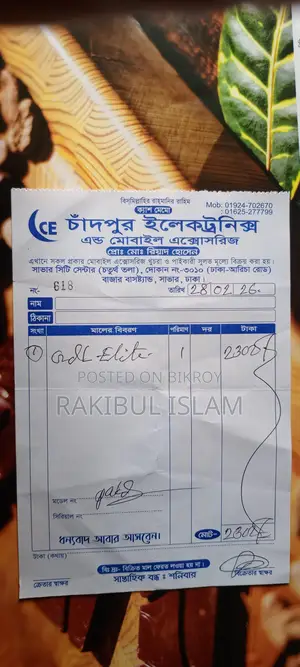 বিসমিল্লাহির রাহমানির রাহিম
ক্যাশ মেমো
Mob: 01924-702670
01625-277799
CE চাঁদপুর ইলেকট্রনিক্স
এন্ড মোবাইল এক্সেসরিজ
প্রোঃ মোঃ রিয়াদ হোসেন
এখানে সকল প্রকার মোবাইল এক্সেসরিজ খুচরা ও পাইকারী সুলভ মূল্যে বিক্রয় করা হয়।
সাভার সিটি সেন্টার (চতুর্থ তলা), দোকান নং-৩০১০ (ঢাকা-আরিচা রোড)
বাজার বাসষ্ট্যান্ড, সাভার, ঢাকা।
নং- 618 তারিখ 28 02 26
নাম
ঠিকানা
সংখ্যা মালের বিবরণ পরিমাণ দর টাকা
1 Elite 1 2300/
POSTED ON BIKROY
RAKIBUL ISLAM
paid
মডেল নং
সিরিয়াল নং
ধন্যবাদ আবার আসবেন।
মোট- 2300/
টাকা (কথায়)
বিঃ দ্রঃ- বিক্রিত মাল ফেরত লওয়া হয় না।
সাপ্তাহিক বন্ধ : শনিবার
ক্রেতার স্বাক্ষর বিক্রেতার স্বাক্ষর